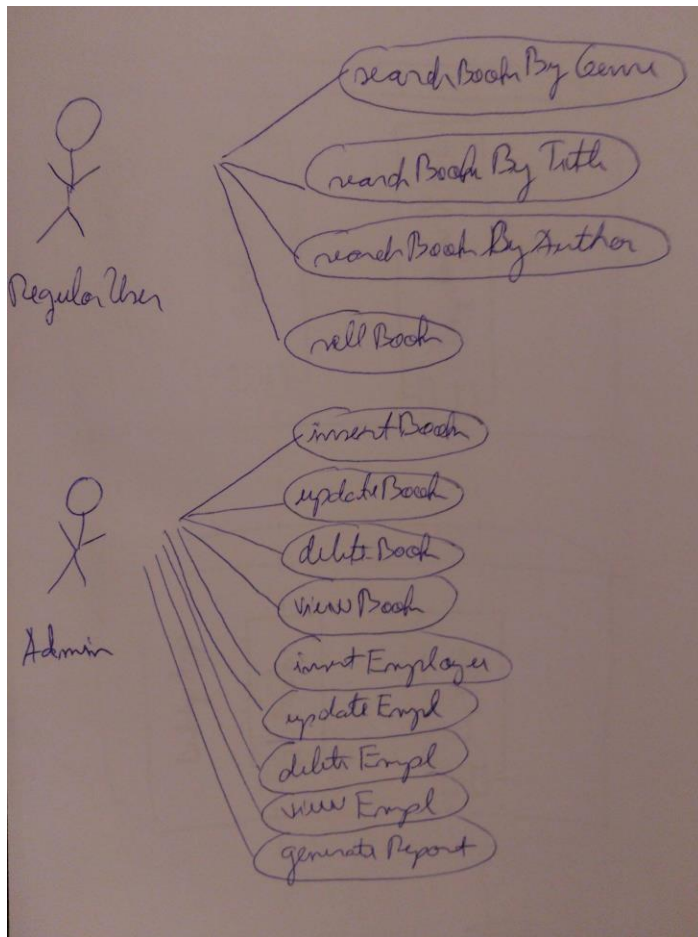 searchBookByGenre
searchBookByTitle
searchBookByAuthor
Regular User
sellBook
insertBook
updateBook
deleteBook
viewBook
Admin
insertEmployee
updateEmpl
deleteEmpl
viewEmpl
generateReport